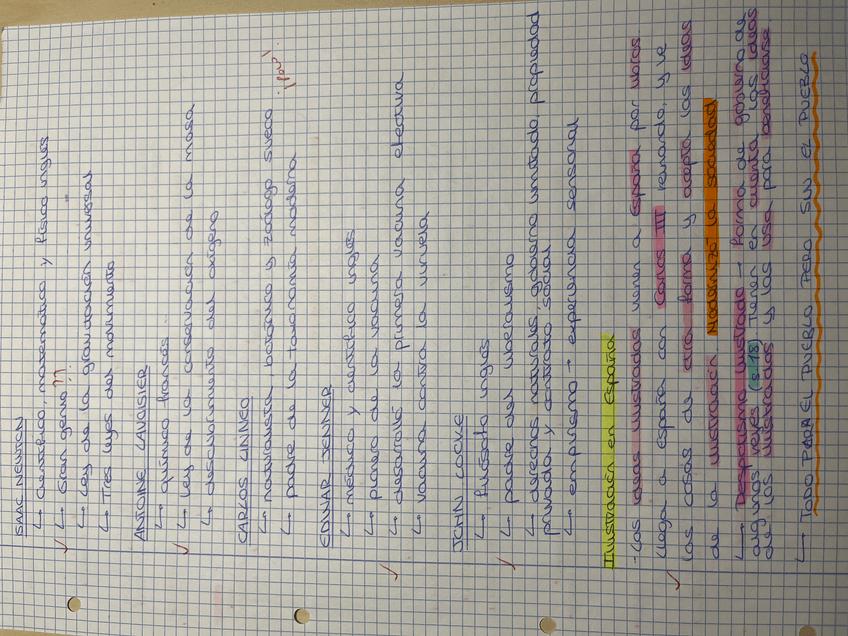 ISAAC NEWTON
↳ Científico, matemático y físico inglés
↳ Gran genio ??
↳ Ley de la gravitación universal
↳ Tres leyes del movimiento
ANTOINE LAVOISIER
↳ químico francés
↳ ley de la conservación de la masa
↳ descubrimiento del oxígeno
CARLOS LINNEO
↳ naturalista, botánico y zoólogo sueco
↳ padre de la taxonomía moderna
EDWAR JENNER
↳ médico y científico inglés
↳ pionero de la vacuna
↳ desarrolló la primera vacuna efectiva
↳ vacuna contra la viruela
JOHN LOCKE
↳ filósofo inglés
↳ padre del liberalismo
↳ derechos naturales, gobierno limitado propiedad
privada y contrato social
↳ empirismo → experiencia sensorial
Ilustración en España
- Las ideas ilustradas vienen a España por libros
llega a españa con Carlos III reinando, y ve
las cosas de otra forma y acepta las ideas
de la ilustración. Moderniza la sociedad
↳ Despotismo ilustrado → forma de gobierno de
algunos reyes (s.18) Tienen en cuenta las ideas
de los ilustrados y las usa para beneficiarse.
↳ TODO PARA EL PUEBLO PERO SIN EL PUEBLO